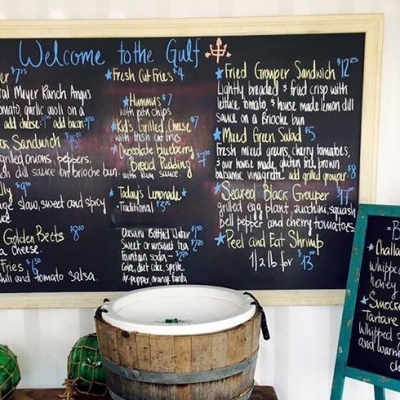 Welcome to the Gulf
$7.75
Meyer Ranch Angus
tomato, garlic aioli on a
add cheese add bacon
Sandwich
grilled onions, peppers,
dill sauce on brioche bun
slaw, sweet and spicy
Golden Beets $8.00
a Cheese
Fries $6
and tomato salsa
Fresh Cut Fries $4
Hummus $7
with pita chips
Kid's Grilled Cheese $7
with fresh cut fries
Chocolate blueberry
Bread Pudding
with sauce
Today's Lemonade
Traditional $3
Bottled Water
Sweet or unsweet tea
Fountain soda
Coke, diet coke, sprite
Fried Grouper Sandwich $12.00
Lightly breaded & fried crisp with
lettuce, tomato, & house made lemon dill
sauce on a Brioche bun
Mixed Green Salad $5
Fresh mixed greens, cherry tomatoes,
& our house made, gluten free, brown
balsamic vinegarette add grilled grouper $8
Seared Black Grouper $17
grilled egg plant, zucchini, squash
bell pepper and cherry tomatoes
Peel and Eat Shrimp
1/2 lb for $13
B
Challa
Whipped
honey
Smoke
Tartare
Whipped
and warm